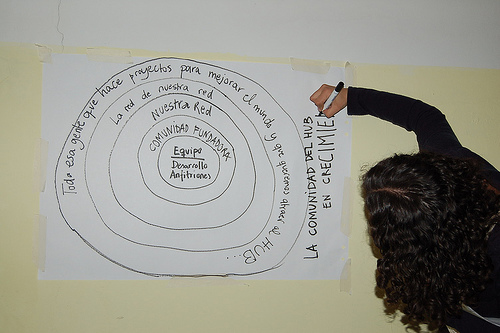 Todo esa gente que hace proyectos para mejorar el mundo y que queremos atraer al HUB...
La red de nuestra red
Nuestra Red
COMUNIDAD FUNDADORA
Equipo
Desarrollo
Anfitriones
LA COMUNIDAD DEL HUB
EN CRECIMIE